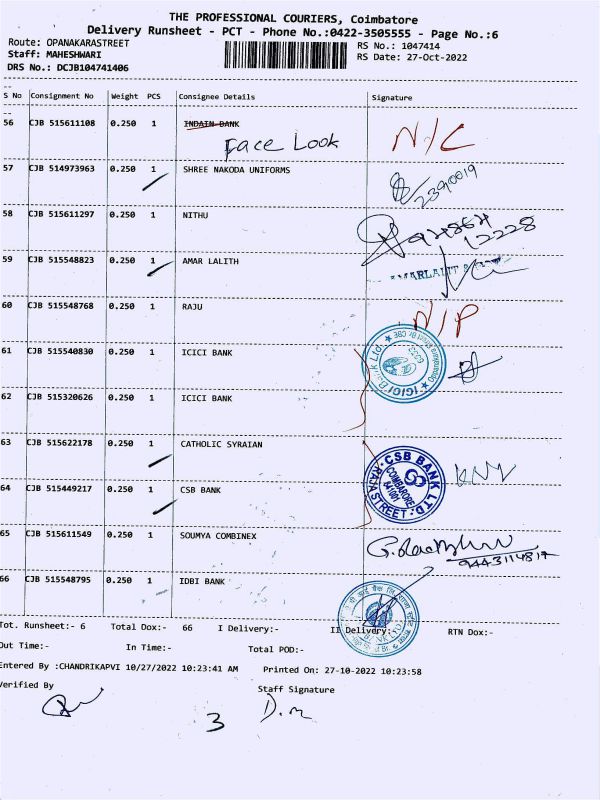 THE PROFESSIONAL COURIERS, Coimbatore
Delivery Runsheet - PCT - Phone No.:0422-3505555 - Page No.:6
Route: OPANAKARASTREET RS No.: 1047414
Staff: MAHESHWARI RS Date: 27-Oct-2022
DRS No.: DCJB104741406
S No Consignment No Weight PCS Consignee Details Signature
56 CJB 515611108 0.250 1 INDAIN BANK
Face Look N/C
57 CJB 514973963 0.250 1 SHREE NAKODA UNIFORMS
2390019
58 CJB 515611297 0.250 1 NITHU
12228
59 CJB 515548823 0.250 1 AMAR LALITH
60 CJB 515548768 0.250 1 RAJU N/P
61 CJB 515540830 0.250 1 ICICI BANK
ICICI Bank Ltd.
62 CJB 515320626 0.250 1 ICICI BANK
63 CJB 515622178 0.250 1 CATHOLIC SYRAIAN
CSB BANK LTD.
COIMBATORE
641001
RAJA STREET
64 CJB 515449217 0.250 1 CSB BANK
65 CJB 515611549 0.250 1 SOUMYA COMBINEX
66 CJB 515548795 0.250 1 IDBI BANK
Tot. Runsheet:- 6 Total Dox:- 66 I Delivery:- II Delivery:- RTN Dox:-
Out Time:- In Time:- Total POD:-
Entered By :CHANDRIKAPVI 10/27/2022 10:23:41 AM Printed On: 27-10-2022 10:23:58
Verified By Staff Signature
3 D.m